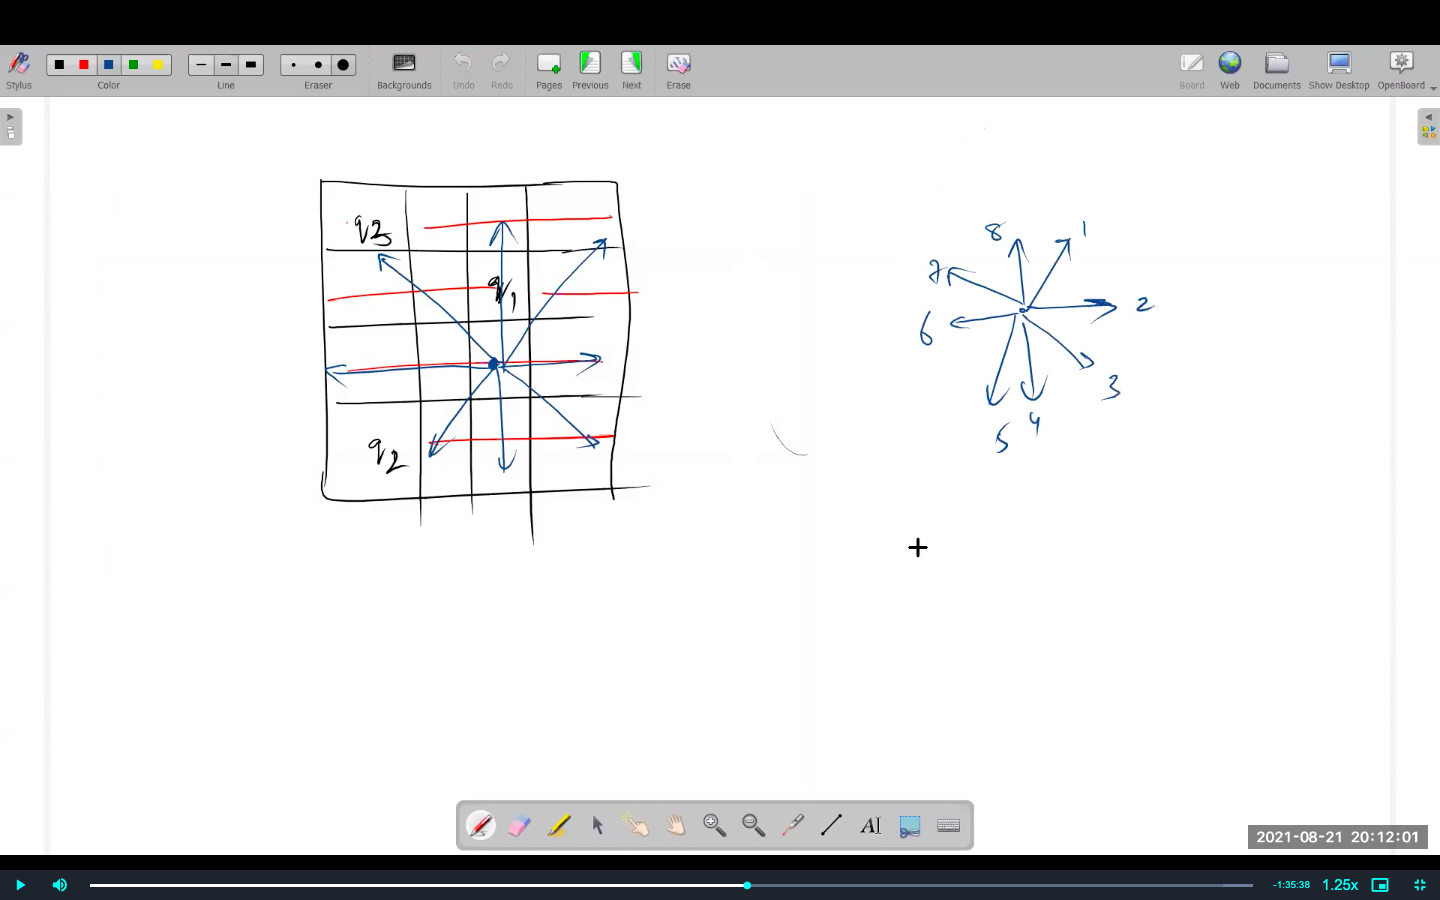 Stylus
Color
Line
Eraser
Backgrounds
Undo
Redo
Pages
Previous
Next
Erase
Board
Web
Documents
Show Desktop
OpenBoard
q3
q1
q2
8
1
7
2
6
3
5
4
AI
2021-08-21 20:12:01
-1:35:38
1.25x